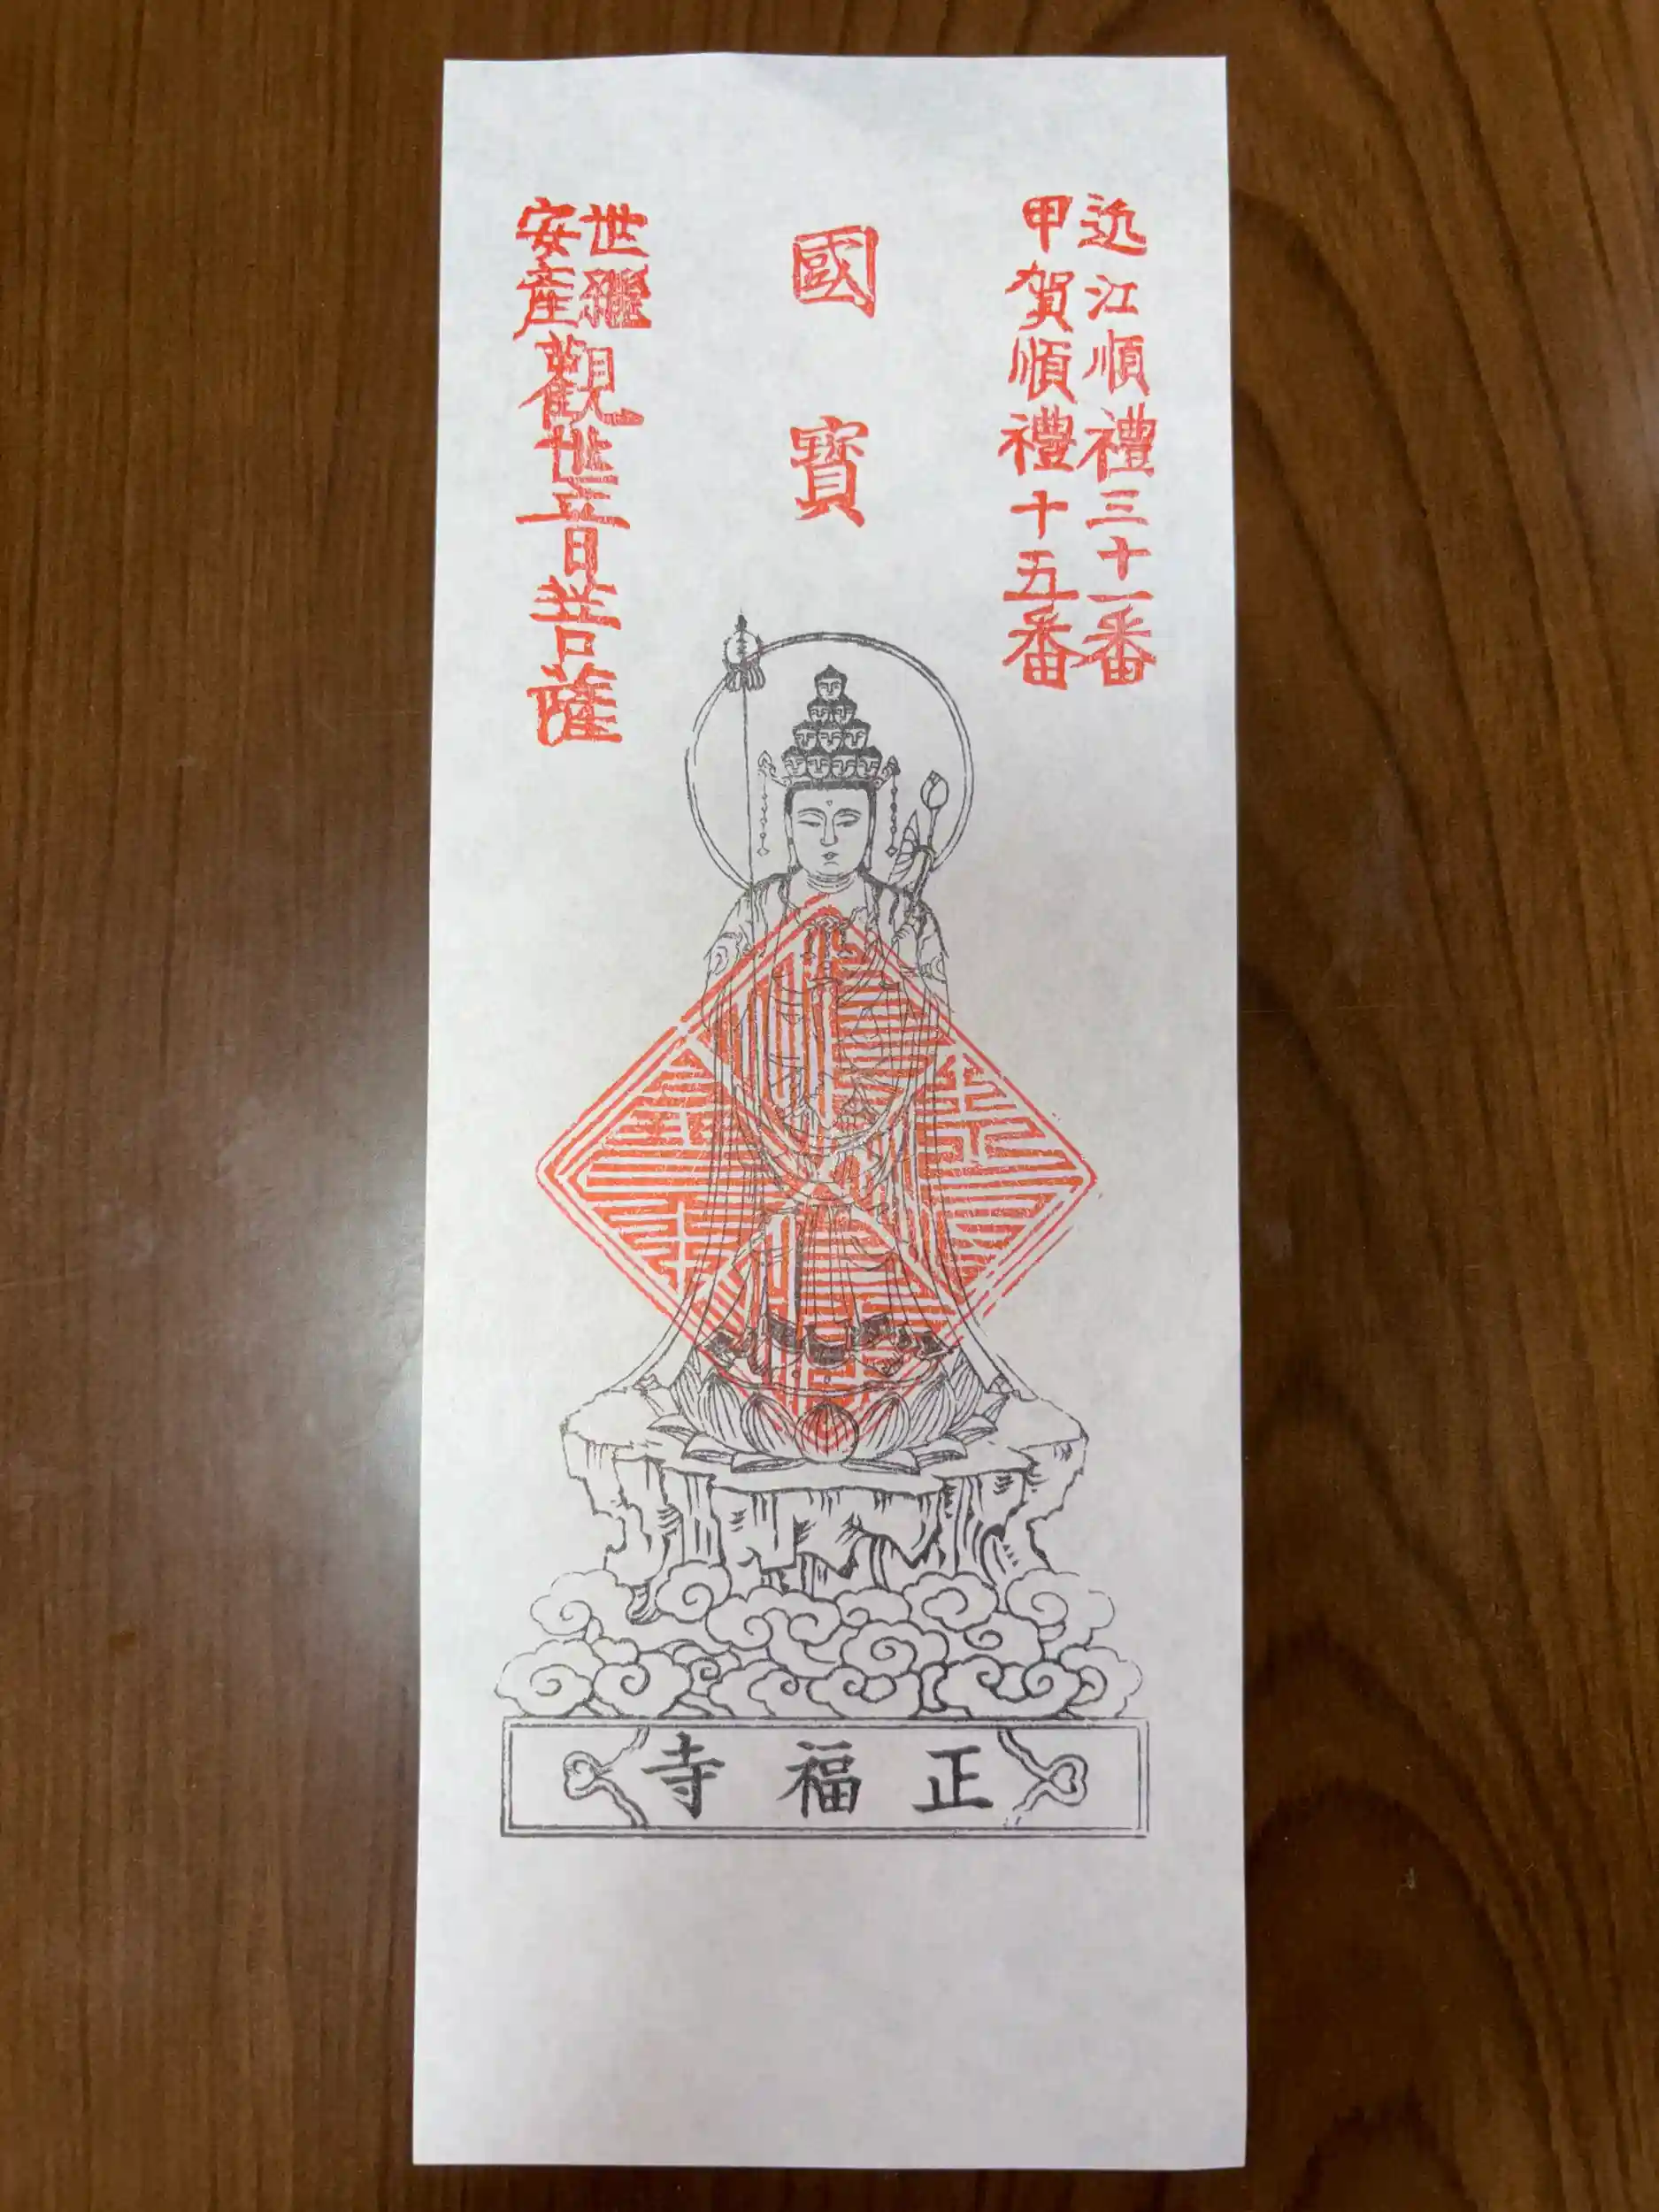 近江順禮三十一番
甲賀順禮十五番
國寶
世繼
安産
觀世音菩薩
正福寺